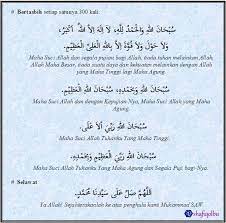 Bertasbih setiap satunya 300 kali.
سُبْحَانَ اللهِ وَالْحَمْدُ لِلّٰهِ، لَا إِلٰهَ إِلَّا اللهُ، اَللهُ أَكْبَرُ،
وَلَا حَوْلَ وَلَا قُوَّةَ إِلَّا بِاللهِ الْعَلِيِّ الْعَظِيْمِ.
Maha Suci Allah dan segala pujian bagi Allah, tiada tuhan melainkan Allah,
Allah Maha Besar, tiada suatu daya dan kekuatan melainkan dengan Allah
yang Maha Tinggi lagi Maha Agung.
سُبْحَانَ اللهِ وَبِحَمْدِهِ، سُبْحَانَ اللهِ الْعَظِيْمِ.
Maha Suci Allah dan dengan Kepujian Nya, Maha Suci Allah yang Maha
Agung.
سُبْحَانَ اللهِ رَبِّيَ الْأَعْلَى.
Maha Suci Allah Tuhanku Yang Maha Tinggi.
سُبْحَانَ اللهِ رَبِّيَ الْعَظِيْمِ وَبِحَمْدِهِ.
Maha Suci Allah Tuhanku Yang Maha Agung dan Segala Puji bagi-Nya.
Selawat
اَللّٰهُمَّ صَلِّ عَلَى سَيِّدِنَا مُحَمَّدٍ.
Ya Allah! Sejahterakanlah ke atas penghulu kami Muhammad SAW
shafiqolbu